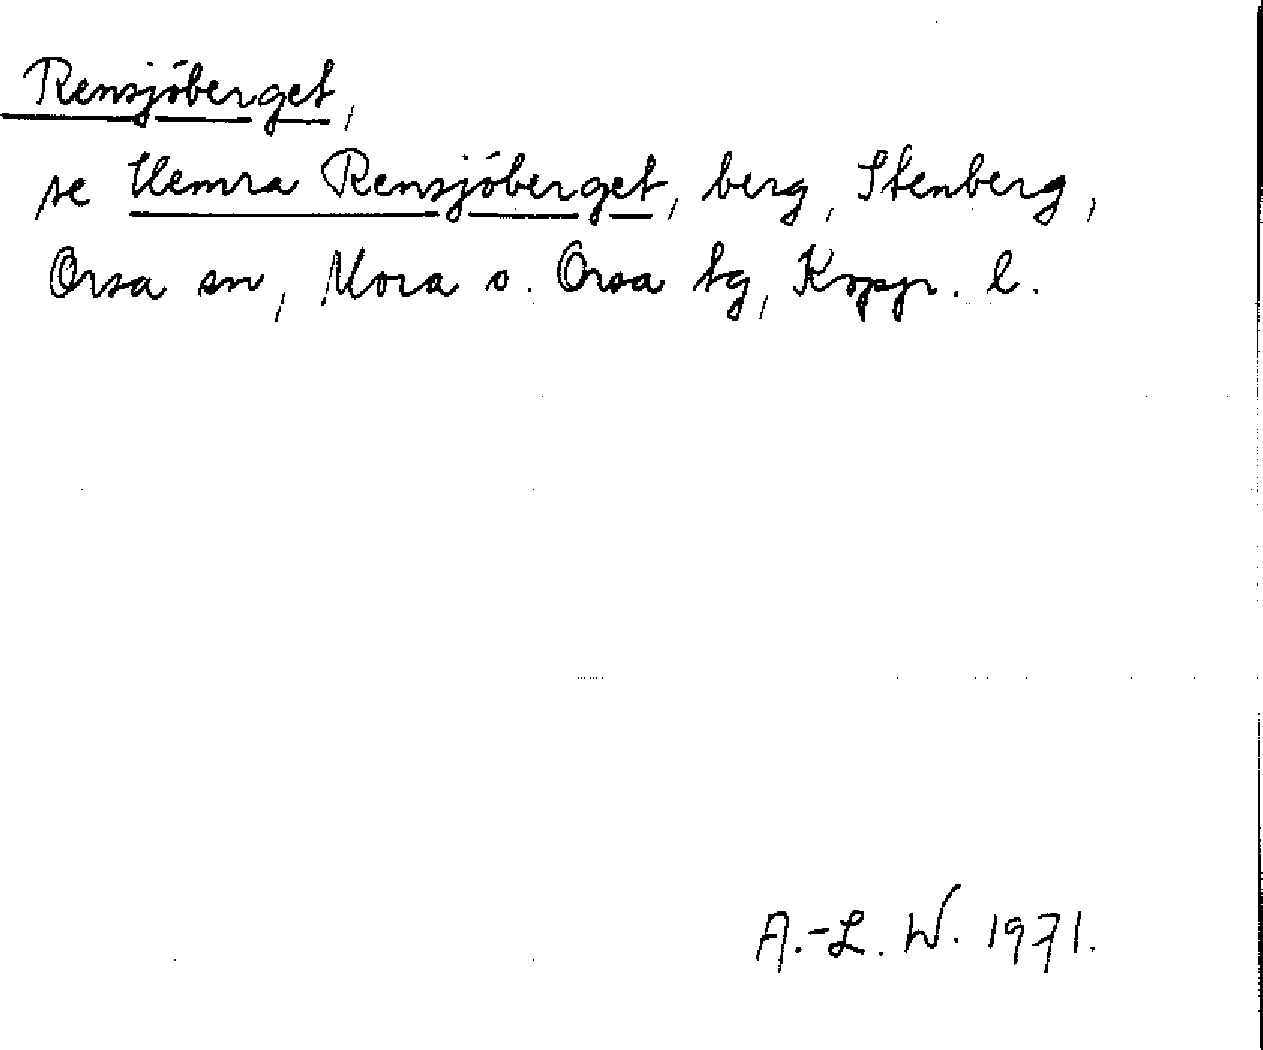 Rensjöberget,
se Hemra Rensjöberget, berg, Stenberg,
Orsa sn, Mora o. Orsa tg, Kopp. l.
A.-L. W. 1971.